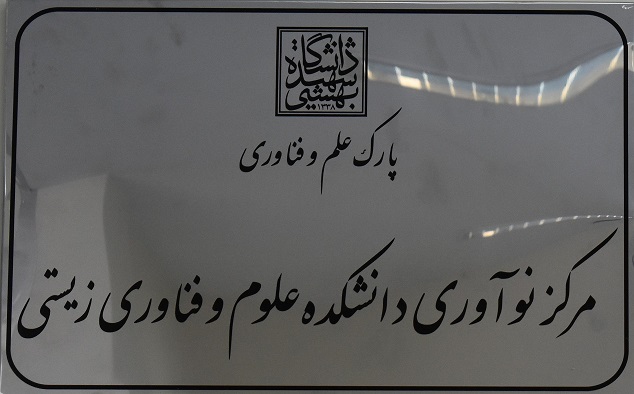 دانشگاه
شهید
بهشتی
۱۳۳۸
پارک علم و فناوری
مرکز نوآوری دانشکده علوم و فناوری زیستی